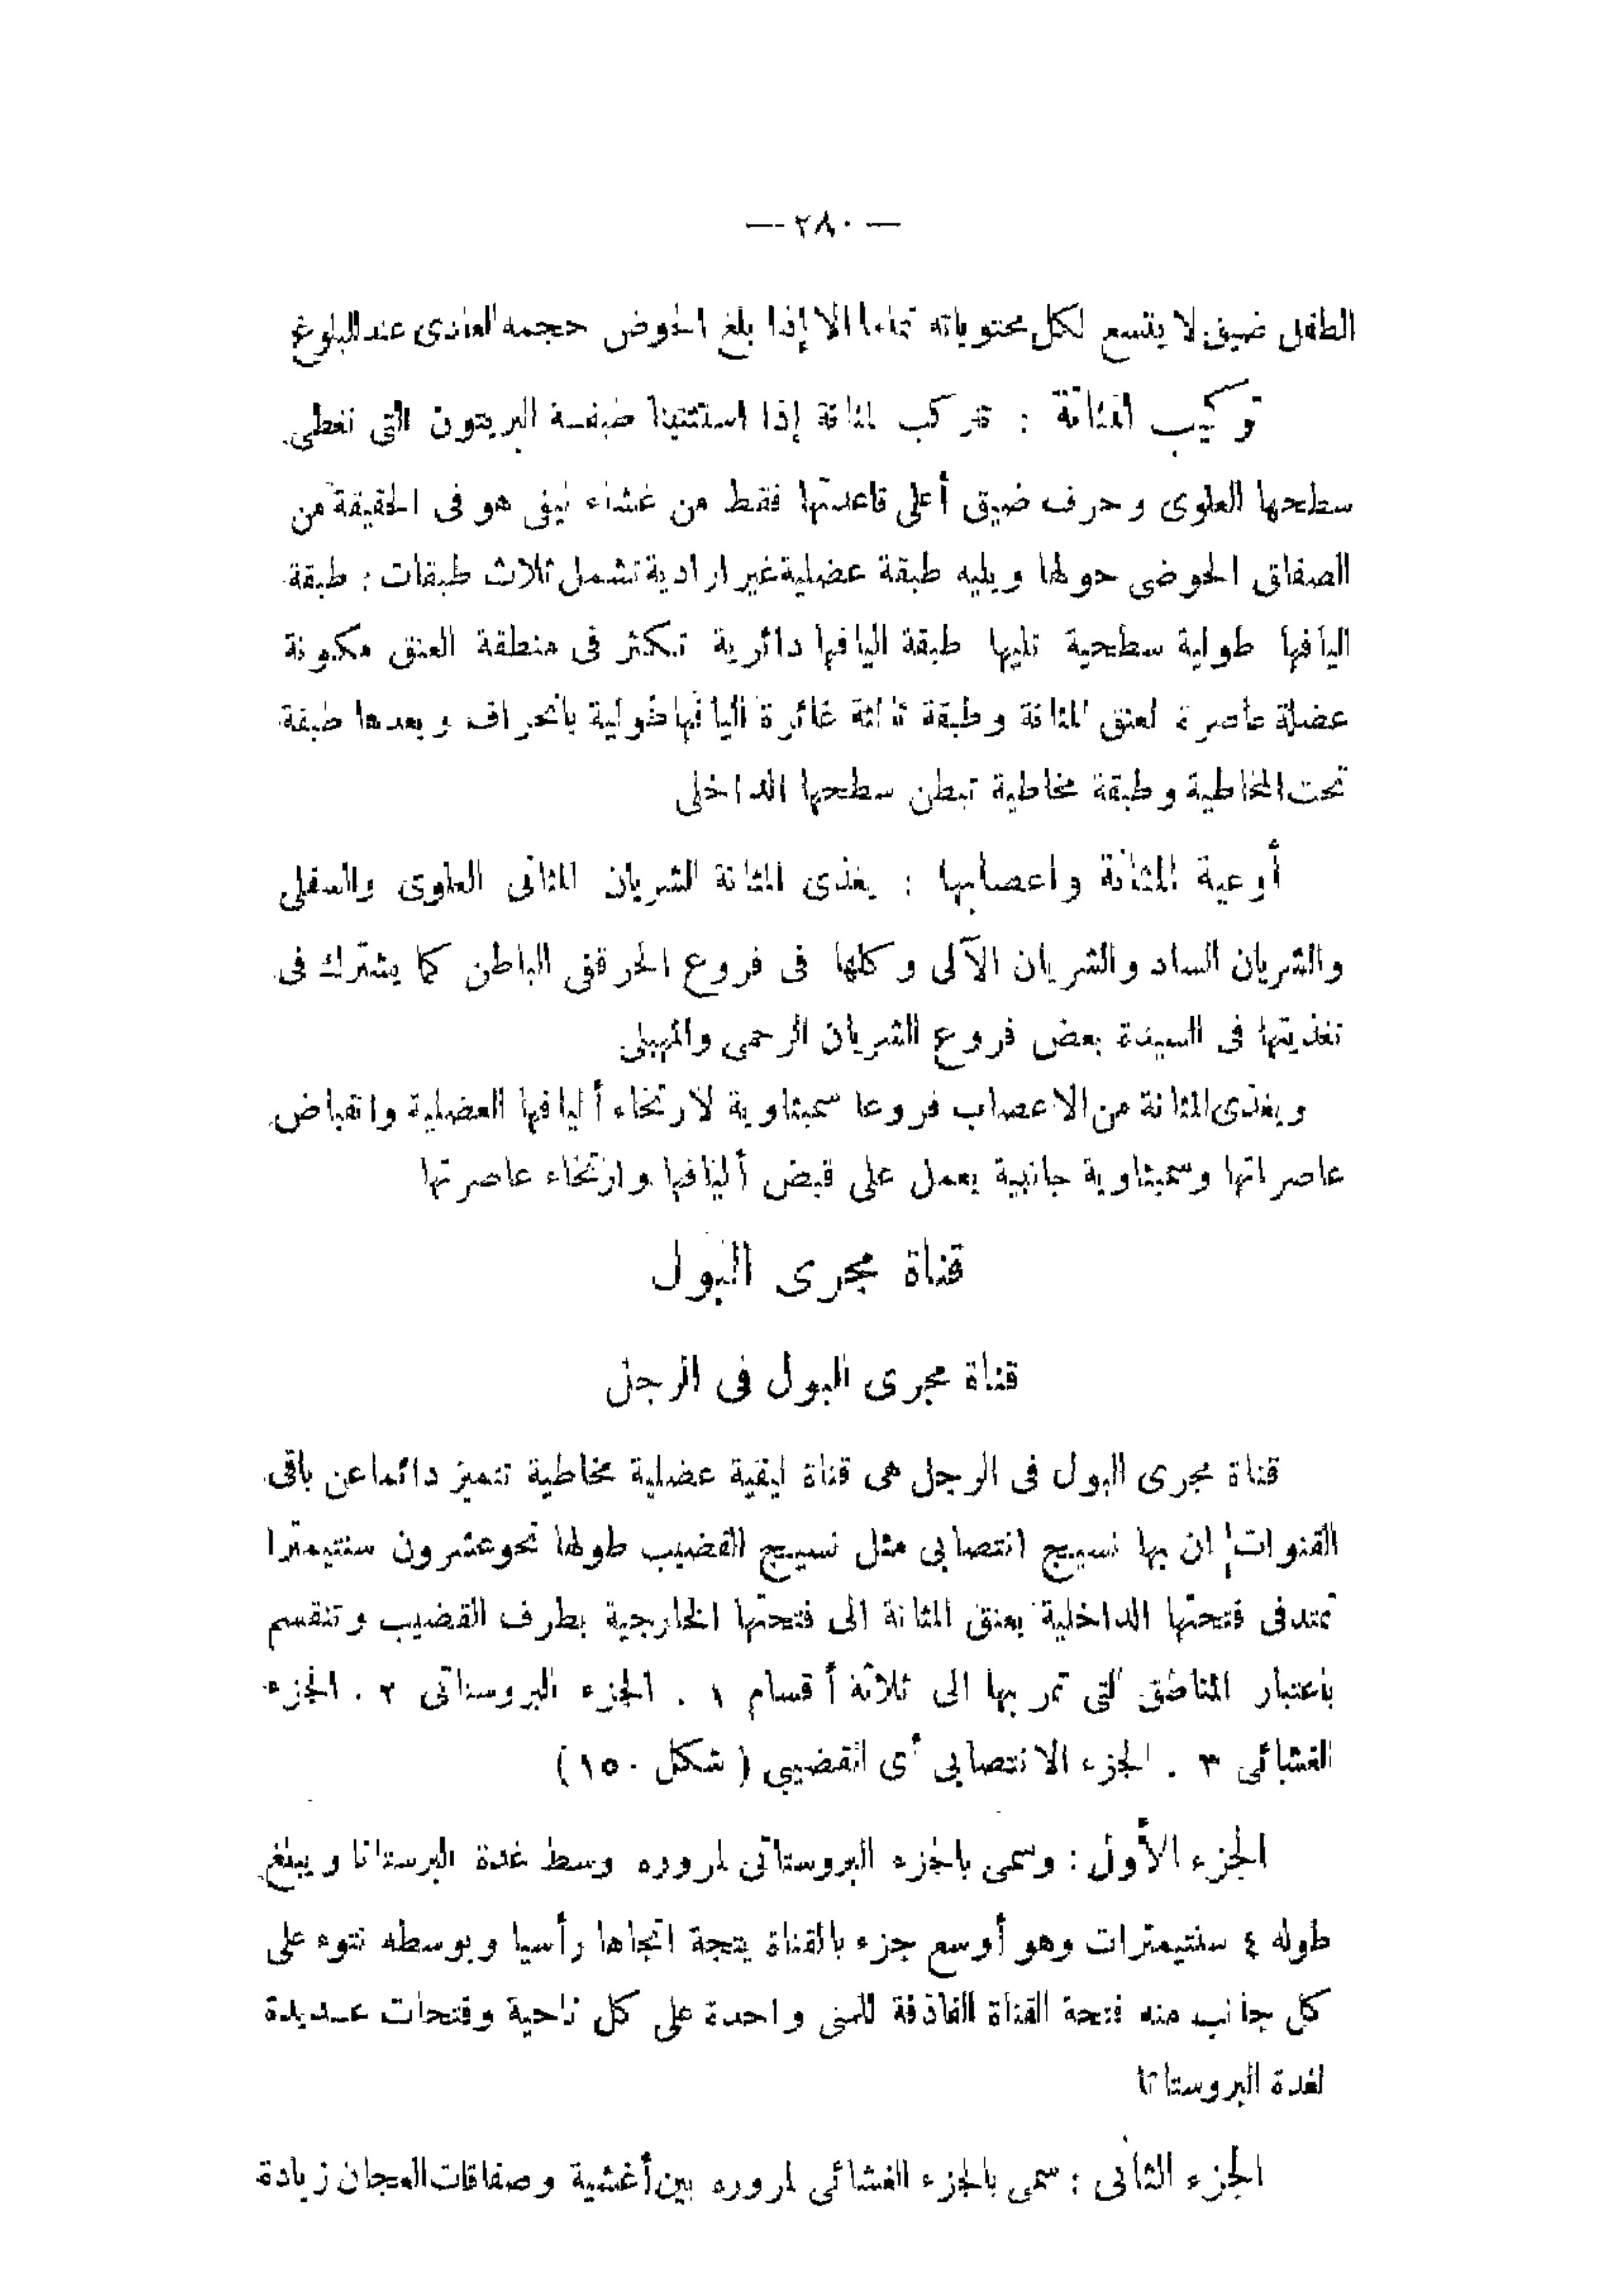 — ٢٨٠ —
الطفل ضيق لا يتسع لكل محتوياته تماما الا إذا بلغ الحوض حجمه العادى عند البلوغ
تركيب المثانة : تتركب المثانة إذا استثنينا طبقة البريتون التى تغطى
سطحها العلوى وحرف ضيق أعلى قاعدتها فقط من غشاء ليفى هو فى الحقيقة من
الصفاق الحوضى حولها ويليه طبقة عضلية غير ارادية تشمل ثلاث طبقات : طبقة
اليافها طولية سطحية تليها طبقة اليافها دائرية تكثر فى منطقة العنق مكونة
عضلة عاصرة لعنق المثانة وطبقة ثالثة غائرة اليافها طولية بانحراف وبعدها طبقة
تحت المخاطية وطبقة مخاطية تبطن سطحها الداخلى
أوعية المثانة واعصابها : يغذى المثانة الشريان المثانى العلوى والسفلى
والشريان الساد والشريان الآلى وكلها فى فروع الحرقفى الباطن كما يشترك فى
تغذيتها فى السيدة بعض فروع الشريان الرحمى والمهبلى
ويغذى المثانة من الاعصاب فروعا سمبثاوية لارتخاء أليافها العضلية وانقباض
عاصراتها وسمبثاوية جانبية يعمل على قبض أليافها وارتخاء عاصرتها
قناة مجرى البول
قناة مجرى البول فى الرجل
قناة مجرى البول فى الرجل هى قناة ليفية عضلية مخاطية تتميز دائما عن باقى
القنوات إن بها نسيج انتصابى مثل نسيج القضيب طولها نحو عشرون سنتيمترا
تمتد فى فتحتها الداخلية بعنق المثانة الى فتحتها الخارجية بطرف القضيب وتنقسم
باعتبار المناطق التى تمر بها الى ثلاثة أقسام ١ . الجزء البروستاتى ٢ . الجزء
الغشائى ٣ . الجزء الانتصابى أى القضيبى ( شكل ١٥٠ )
الجزء الأول : وسمى بالجزء البروستاتى لمروره وسط غدة البرستاتا ويبلغ
طوله ٤ سنتيمترات وهو أوسع جزء بالقناة يتجة اتجاها رأسيا وبوسطه نتوء على
كل جانب منه فتحة القناة القاذفة للمنى واحدة على كل ناحية وفتحات عديدة
لغدة البروستاتا
الجزء الثانى : سمى بالجزء الغشائى لمروره بين أغشية وصفاقات العجان زيادة